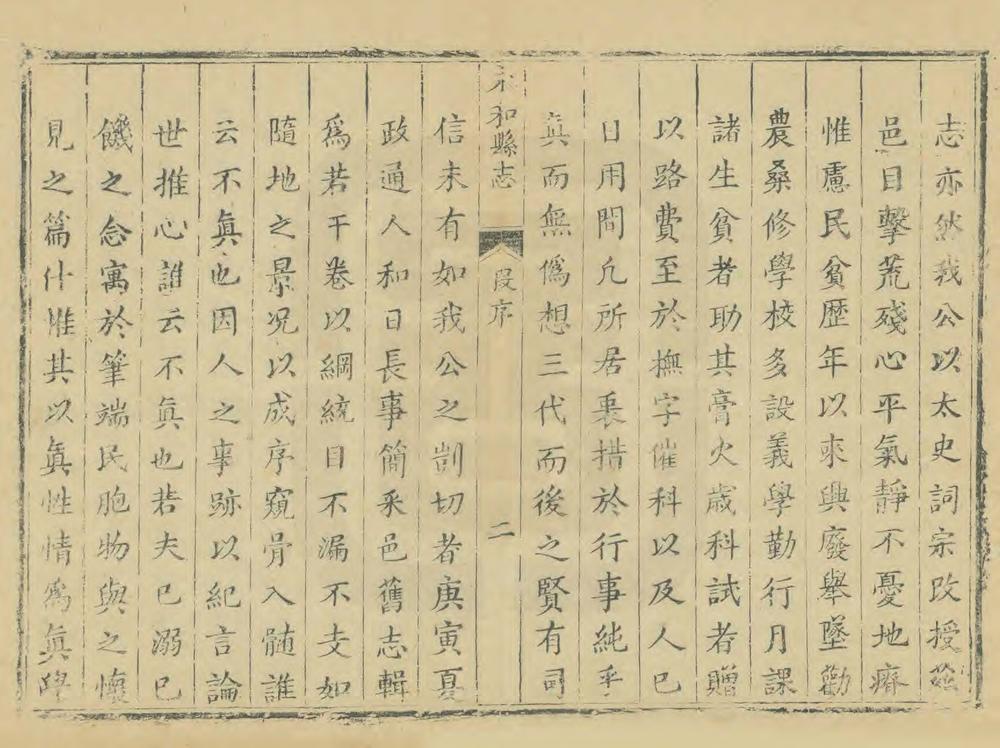 志亦然我公以太史詞宗改授茲
邑目擊荒殘心平氣靜不憂地瘠
惟慮民貧歷年以來興廢舉墜勸
農桑修學校多設義學勤行月課
諸生貧者助其膏火歲科試者贈
以路費至於撫字催科以及人己
日用間凡所居衷措於行事純乎
真而無僞想三代而後之賢有司
永和縣志
段序
二
信未有如我公之剴切者庚寅夏
政通人和日長事簡釆邑舊志輯
爲若干卷以綱統目不漏不支如
隨地之景况以成序窺骨入髄誰
云不眞也因人之事跡以紀言論
世推心誰云不眞也若夫已溺已
饑之念寓於筆端民胞物與之懷
見之篇什惟其以眞性情爲眞